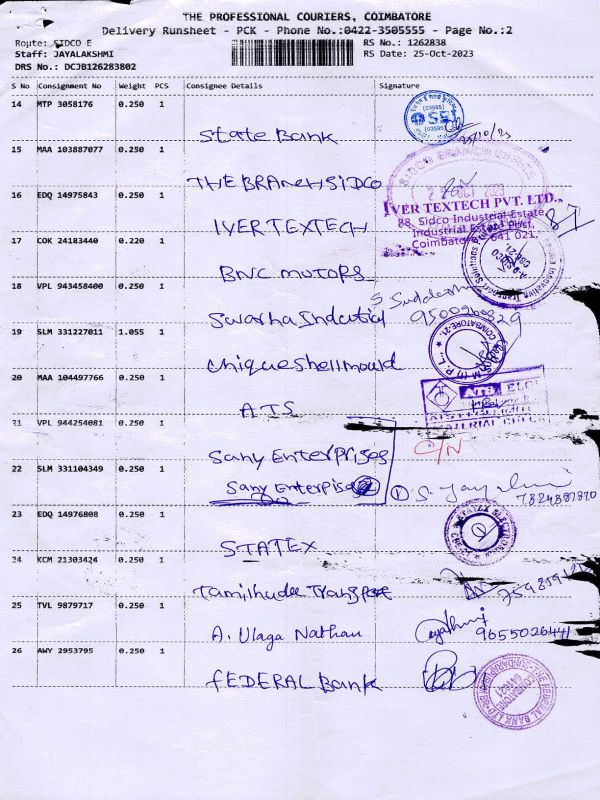 THE PROFESSIONAL COURIERS, COIMBATORE
Delivery Runsheet - PCK - Phone No.:0422-3505555 - Page No.:2
Route: SIDCO E
RS No.: 1262838
Staff: JAYALAKSHMI
RS Date: 25-Oct-2023
DRS No.: DCJB126283802
S No Consignment No Weight PCS Consignee Details Signature
14 MTP 3058176 0.250 1
State Bank
SBI
(03595)
25/10/23
15 MAA 103887077 0.250 1
THE BRAnch SIDCO
SIDCO BRANCH OFFICE
OCT 2023
16 EDQ 14975843 0.250 1
IYER TEXTECH
IYER TEXTECH PVT. LTD.,
88, Sidco Industrial Estate,
Industrial Estate Post,
Coimbatore - 641 021.
17 COK 24183440 0.220 1
BNC MOTORS
18 VPL 943458400 0.250 1
Swarna Industrial
19 SLM 331227011 1.055 1
chiqueshellmould
COIMBATORE-21.
20 MAA 104497766 0.250 1
ATS
ATS ELGI
21 VPL 944254081 0.250 1
Sany Enterprises
C/N
22 SLM 331104349 0.250 1
Sany Enterpises 2
1
23 EDQ 14976808 0.250 1
STATEX
24 KCM 21303424 0.250 1
Tamilnudu Transport
25 TVL 9879717 0.250 1
A. Ulaga Nathan
9655026441
26 AWY 2953795 0.250 1
FEDERAL Bank